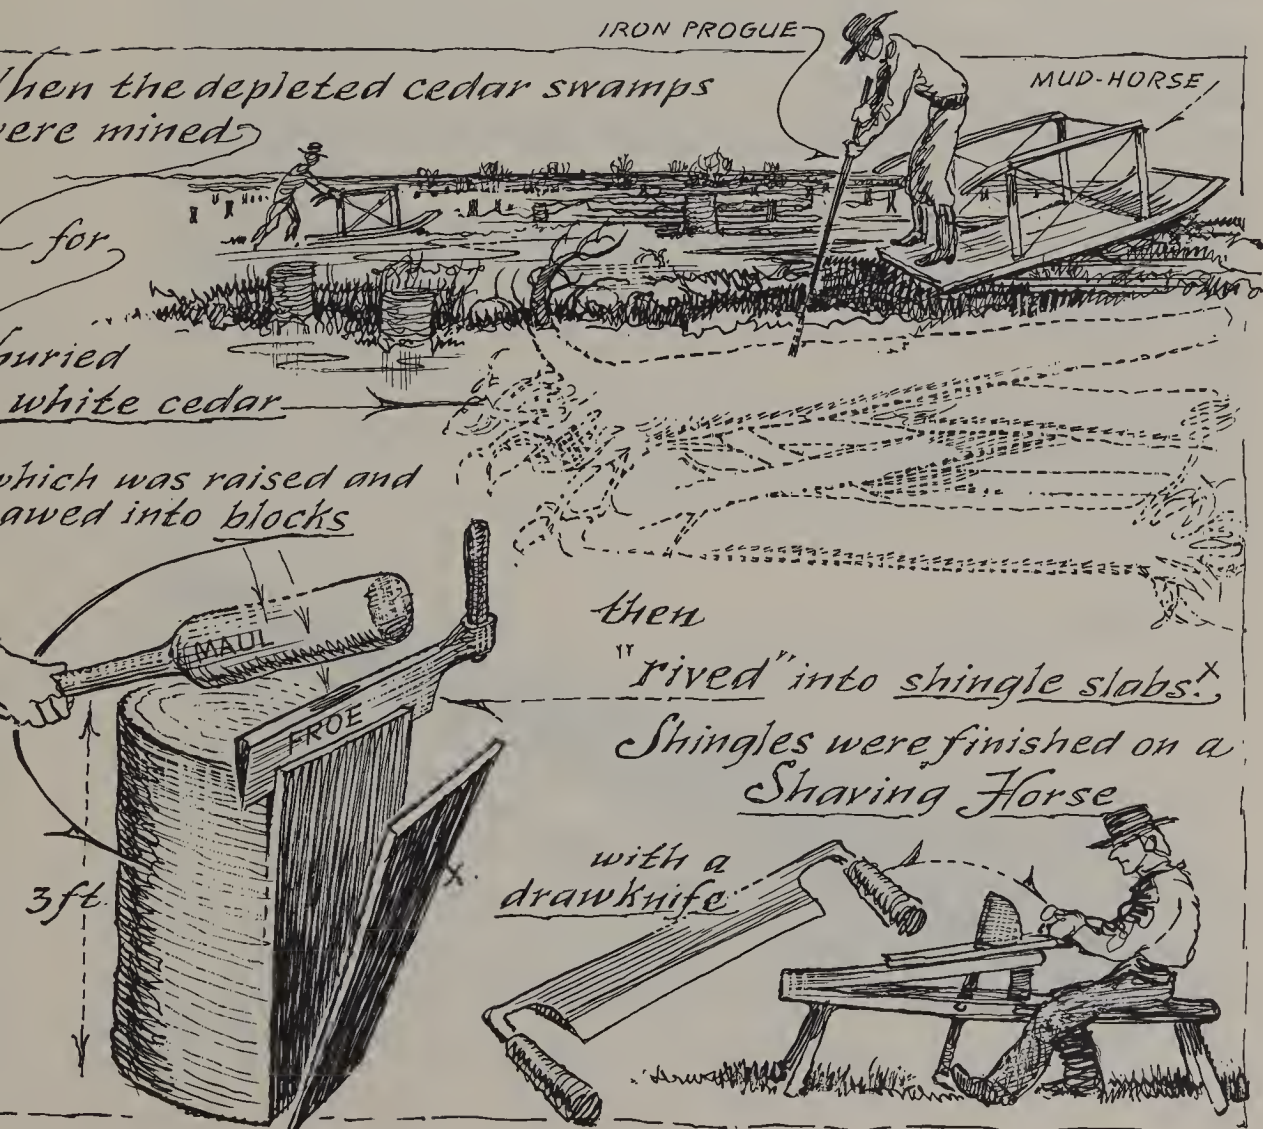 IRON PROGUE
MUD-HORSE
hen the depleted cedar swamps
were mined
for
buried
white cedar
which was raised and
awed into blocks
MAUL
FROE
3 ft.
x
then
"rived" into shingle slabs.x
Shingles were finished on a
Shaving Horse
with a
drawknife